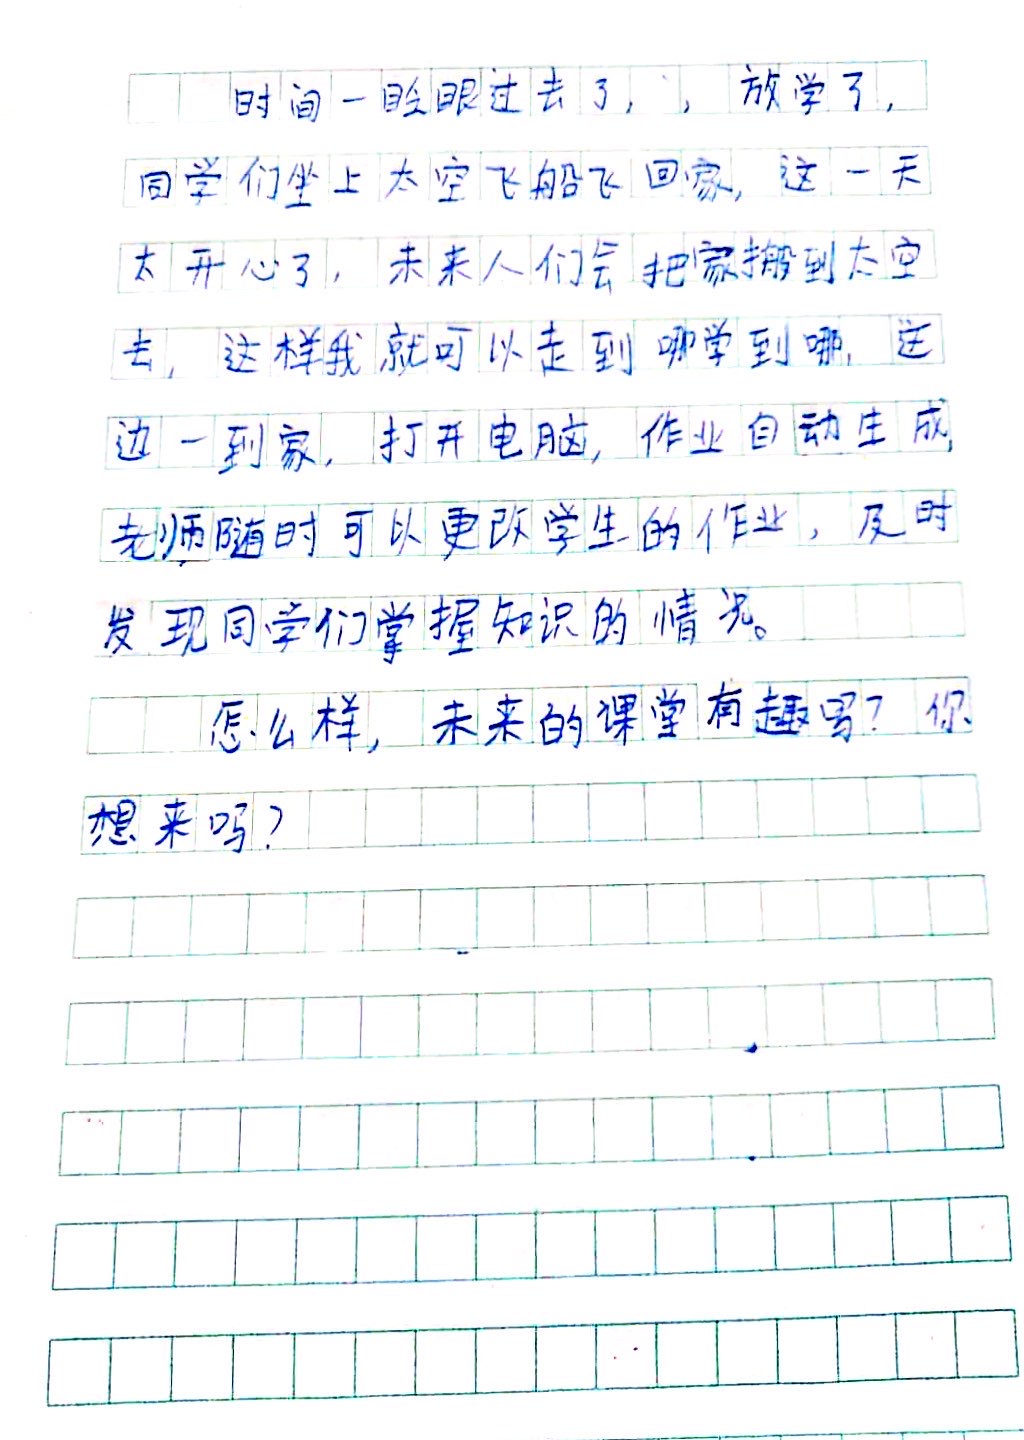 时间一眨眼过去了，，放学了，
同学们坐上太空飞船飞回家，这一天
太开心了，未来人们会把家搬到太空
去，这样我就可以走到哪学到哪，这
边一到家，打开电脑，作业自动生成，
老师随时可以更改学生的作业，及时
发现同学们掌握知识的情况。
怎么样，未来的课堂有趣吗？你
想来吗？